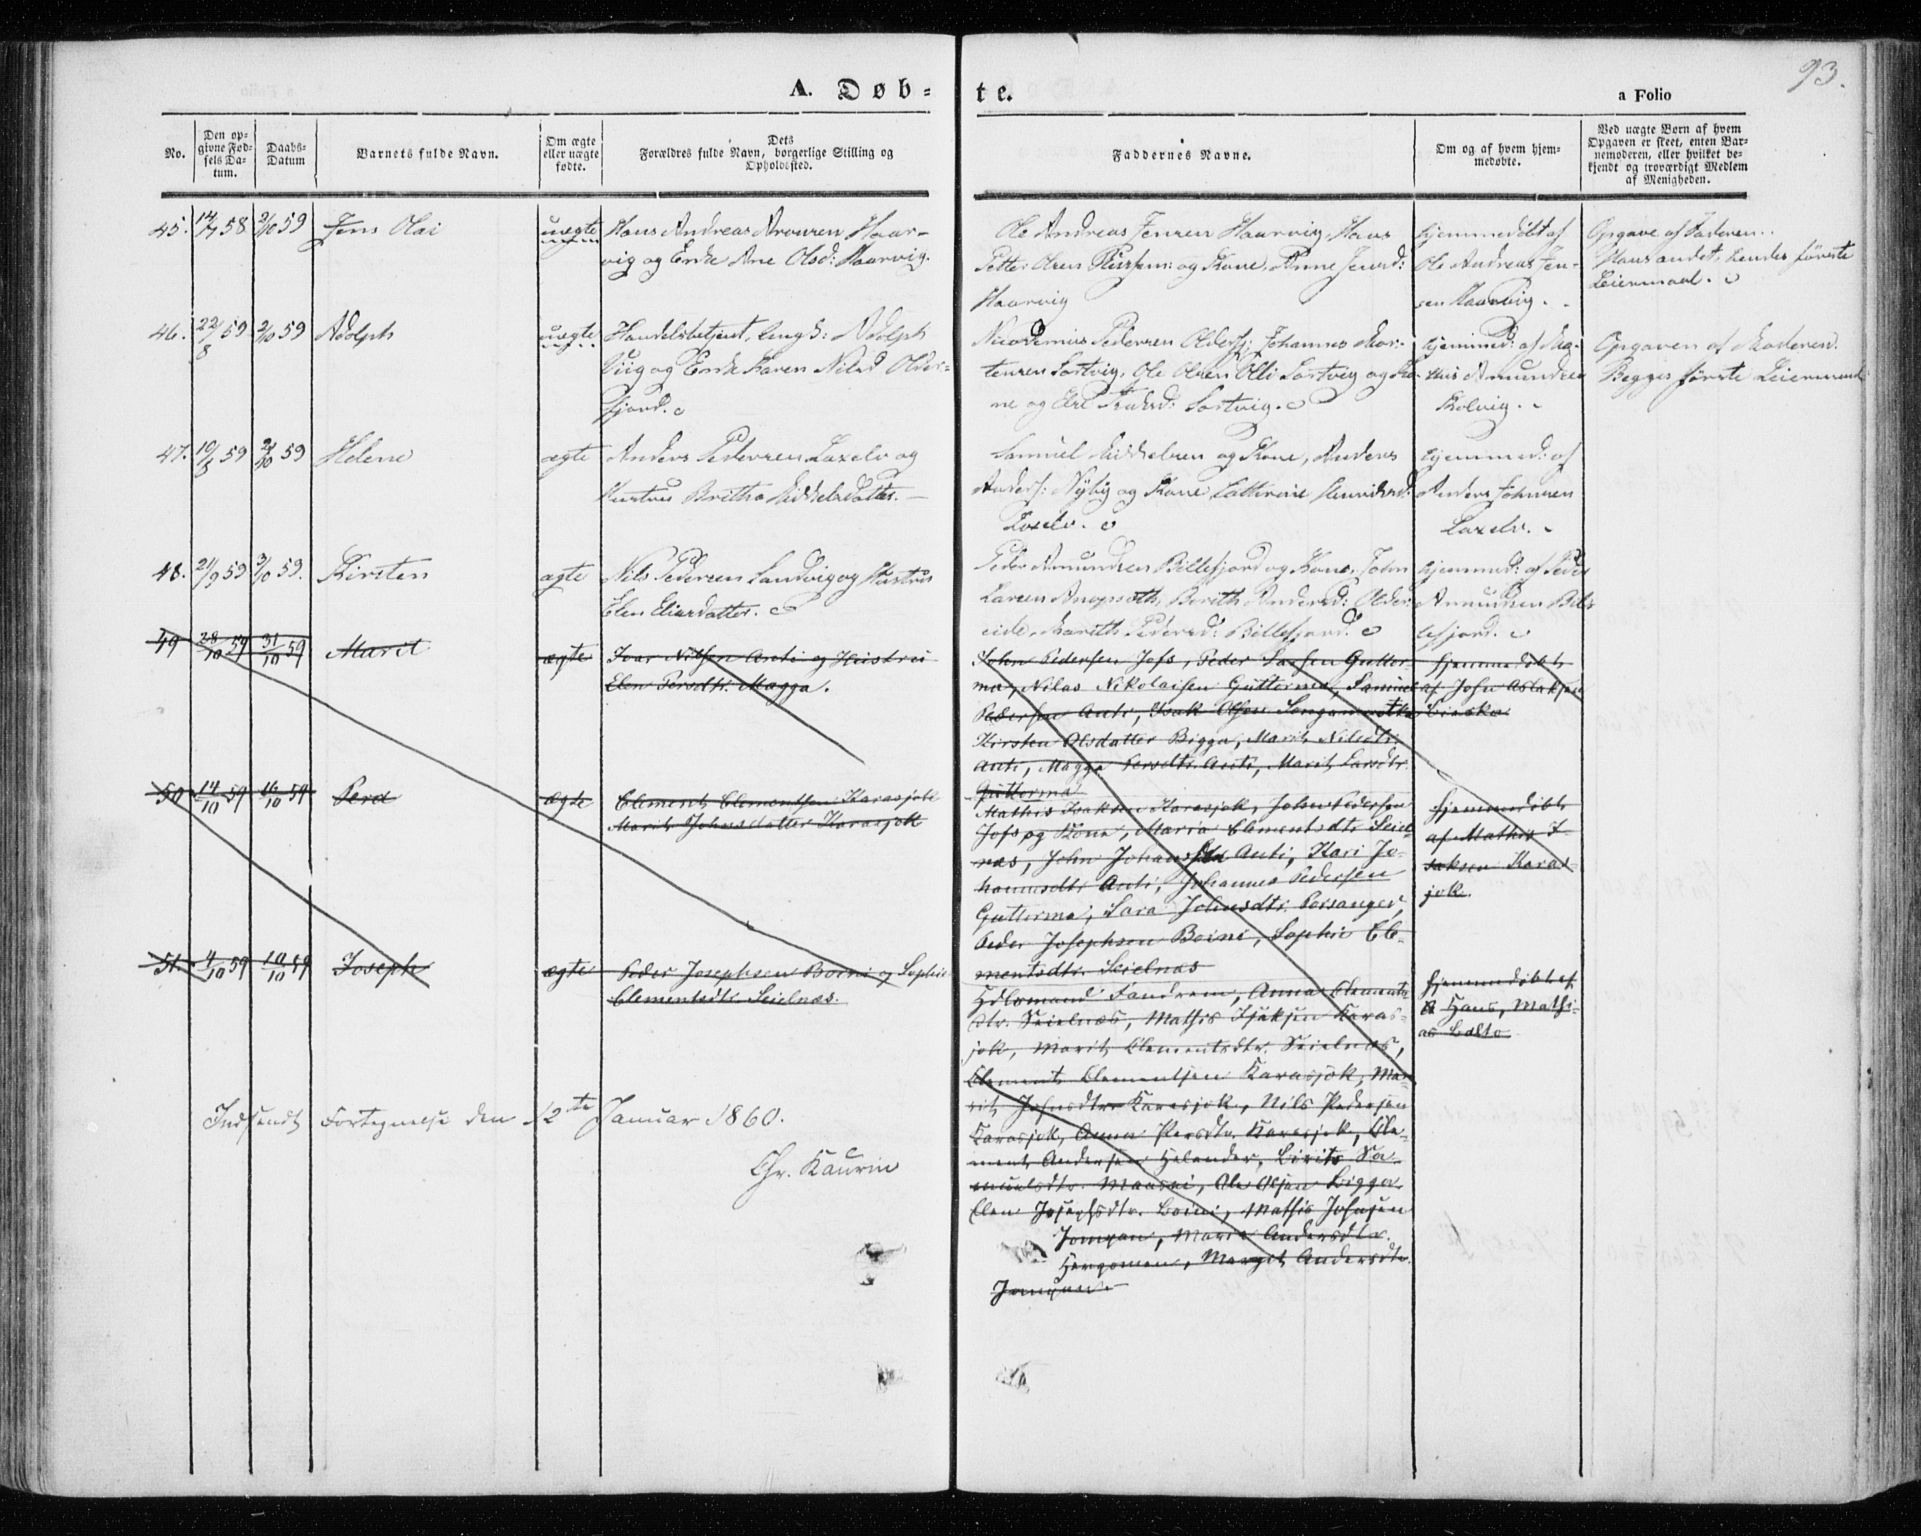 93.
A. Døb=
te.
a Folio
No.
Den op=
givne Fød=
sels Da=
tum.
Daabs=
Datum
Barnets fulde Navn.
Om ægte
eller uægte
fødte.
Dets
Forældres fulde Navn, borgerlige Stilling og
Opholdssted.
Faddernes Navne.
Om og af hvem hjem=
medøbte.
Ved uægte Børn af hvem
Opgaven er skeet, enten Bar=
nemoderen, eller hvilket be=
kjendt og troværdigt Medlem
af Menigheden.
45. 14/7 58 2/10 59 Jens Olai uægte Hans Andreas Haar-
vig og Enke Ane Olsd: Haarvig.
Ole Andreas Jensen Haarvig, Hans
Petter Olsen og Kone, Anne Jensd:
Haarvig
Hjemmedøbt af
Ole Andreas Jen-
sen Haarvig.
Opgave af Faderen.
Hans andet, hendes første
Leiermaal.
46. 22/8 59 2/10 59 Adolph uægte Handelsbetjent, Adolph
og Enke Karen Nilsd Older-
fjord.
Nicodemus Pedersen Olderfj: Johannes Mor-
tensen Sortvig, Ole Olsen Sortvig og Ko-
ne og Sortvig.
Hjemmed: af Ma-
this Amundsen
Kolvig.
Opgaven af Moderen.
Begges første Leiermaal
47. 10/8 59 2/10 59 Helene ægte Anders Pedersen Laxelv og
Hustru Britha Middelsdatter.
Samuel Middelsen og Kone, Anders
Anders: Nyby og Kone Cathrine Henriksd:
Laxelv.
Hjemmed: af
Anders Johnsen
Laxelv.
48. 21/9 59 3/10 59. Kirsten ægte Nils Pedersen Sandvig og Hustru
Elen Eliasdatter.
Peder Amundsen Billefjord og Kone, John
Larsen Berith Andersd: Older-
eide, Marith Pedersd: Billefjord.
Hjemmed: af Peder
Amundsen Bil-
lefjord.
49 28/10 59 31/10 59 Marit ægte Ivar Nilsen Anti og Hustru
Elen Persdtr. Magga.
John Pedersen Jofs, Peder Larsen Gutter-
ma, Nilas Nikolaisen Gutterma, Samuel
Pedersen Anti, Isak Olsen
Kirsten Olsdatter Bigga, Marit Nilsdtr.
Anti, Magga Persdtr. Anti, Marit Larsdtr.
Gutterma
Hjemmedøbt
af John Aslaksen
50 14/10 59 16/10 59 Perd ægte Clement Clementsen Karasjok
Marit Johnsdatter Karasjok
Mathis Isaksen Karasjok, John Pedersen
Jofs og Kone, Maria Clementsdtr. Seiel-
nas, John Johansen Anti, Kari Jo-
hannesdtr Anti, Johannes Pedersen
Gutterma, Sara Johnsdtr. Porsanger,
Peder Josephsen Boine, Sophie Cle-
mentsdtr. Seielnas
Hjemmedøbt
af Mathis I-
saksen Karas-
jok.
51. 4/10 59 10/10 59 Joseph ægte Peder Josephsen Boini og Sophie
Clementsdtr. Seielnas.
Fandrem, Anna Clements-
dtr. Seielnas, Mathis Isaksen Karas-
jok, Marit Clementsdtr. Seielnas,
Clement Clementsen Karasjok, Ma-
rit Johnsdtr Karasjok, Nils Pedersen
Karasjok, Anna Persdtr. Karasjok, Cle-
ment Andersen Helander, Birits Sa-
muelsdtr. Ole Olsen Bigga
Elen Josephsdtr. Boini, Mathis Johnsen
Jomgan, Maria Andersdtr.
Margit Andersdtr
Hjemmedøbt af
Hans, Mathi-
as Balto
Indsendt Fortegnelse den 12te Januar 1860.
Chr. Kaurin